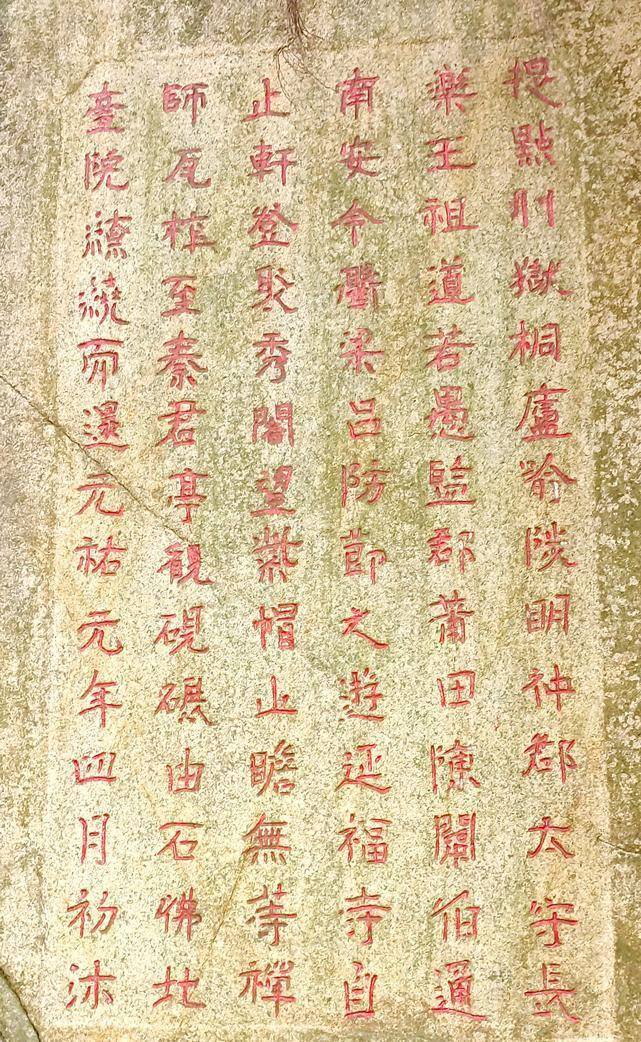 提點刑獄桐廬喻陟明仲郡太守長
樂王祖道若愚監郡莆田陳闡伯通
南安令梁呂防節之遊延福寺自
止軒登聚秀閣望紫帽山瞻無等禪
師瓦柞至秦君亭觀硯磉由石佛北
臺院繚繞而還元祐元年四月初沐